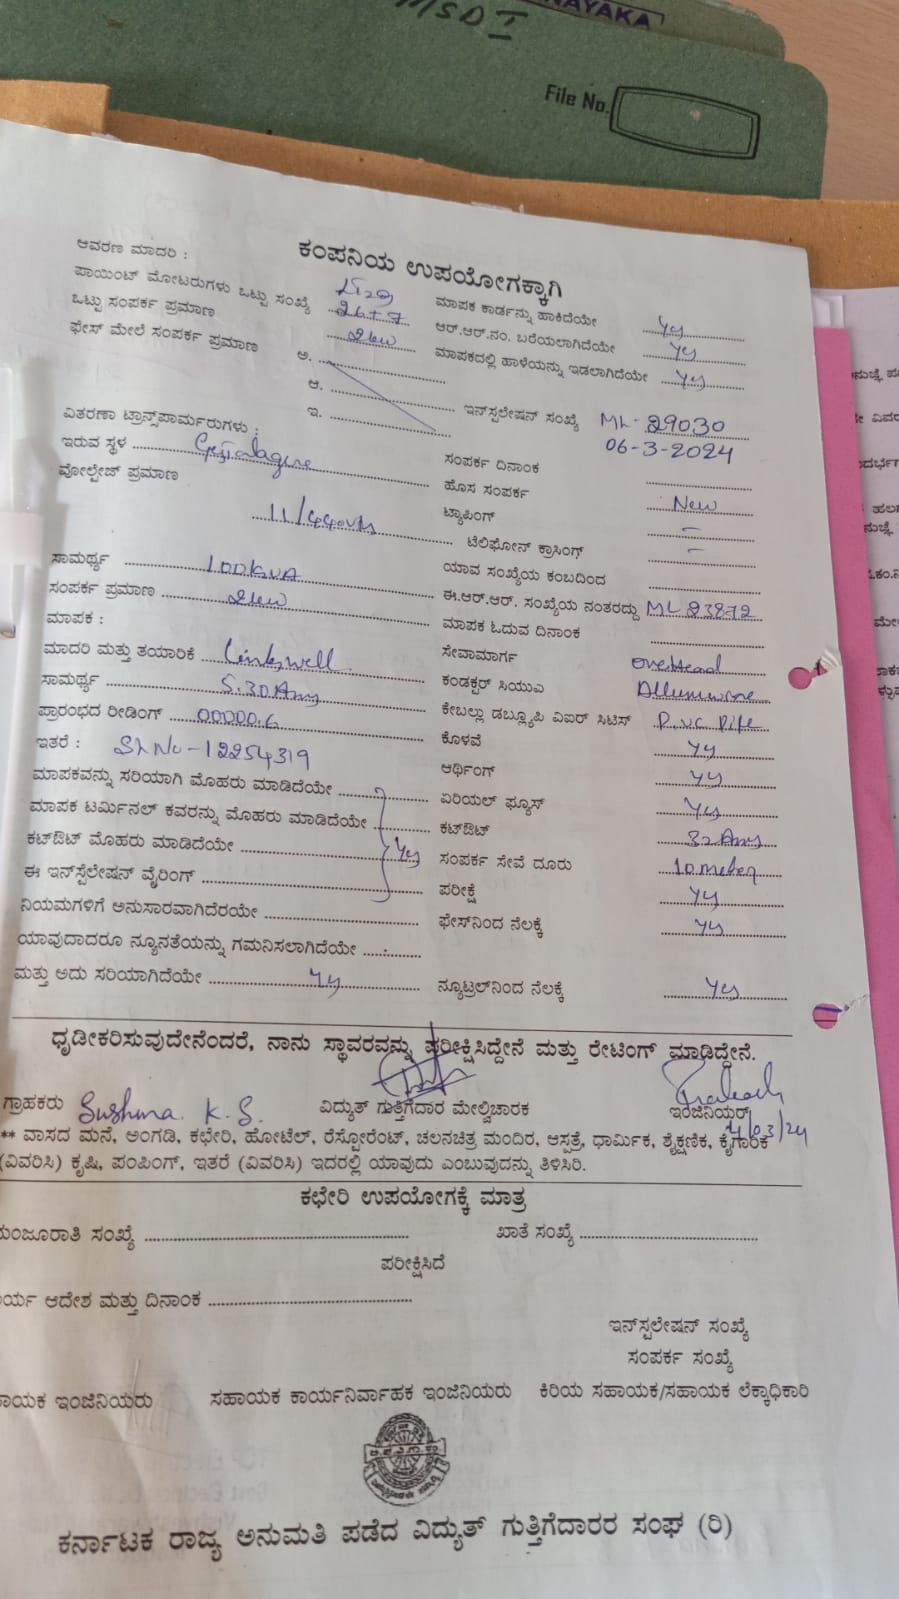 MSD I
NAYAKA
File No.
ಕಂಪನಿಯ ಉಪಯೋಗಕ್ಕಾಗಿ
ಆವರಣ ಮಾದರಿ :
ಪಾಯಿಂಟ್ ಮೋಟರುಗಳು ಒಟ್ಟು ಸಂಖ್ಯೆ 26+7 ಮಾಪಕ ಕಾರ್ಡನ್ನು ಹಾಕಿದೆಯೇ Yes
ಒಟ್ಟು ಸಂಪರ್ಕ ಪ್ರಮಾಣ 2kw ಆರ್.ಆರ್.ನಂ. ಬರೆಯಲಾಗಿದೆಯೇ Yes
ಫೇಸ್ ಮೇಲೆ ಸಂಪರ್ಕ ಪ್ರಮಾಣ ಅ. ಮಾಪಕದಲ್ಲಿ ಹಾಳೆಯನ್ನು ಇಡಲಾಗಿದೆಯೇ Yes
ಆ.
ಇ. ಇನ್‌ಸ್ಪಲೇಷನ್ ಸಂಖ್ಯೆ ML-29030
ವಿತರಣಾ ಟ್ರಾನ್ಸ್‌ಪಾರ್ಮರುಗಳು :
ಇರುವ ಸ್ಥಳ ಸಂಪರ್ಕ ದಿನಾಂಕ 06-3-2024
ವೋಲ್ಟೇಜ್ ಪ್ರಮಾಣ ಹೊಸ ಸಂಪರ್ಕ New
11/440vts ಟ್ಯಾಪಿಂಗ್ –
ಟೆಲಿಫೋನ್ ಕ್ರಾಸಿಂಗ್ –
ಸಾಮರ್ಥ್ಯ 100kVA ಯಾವ ಸಂಖ್ಯೆಯ ಕಂಬದಿಂದ
ಸಂಪರ್ಕ ಪ್ರಮಾಣ 2kw ಈ.ಆರ್.ಆರ್. ಸಂಖ್ಯೆಯ ನಂತರದ್ದು ML 23872
ಮಾಪಕ : ಮಾಪಕ ಓದುವ ದಿನಾಂಕ
ಮಾದರಿ ಮತ್ತು ತಯಾರಿಕೆ Linkwell ಸೇವಾಮಾರ್ಗ overhead
ಸಾಮರ್ಥ್ಯ 5.30 Amps ಕಂಡಕ್ಟರ್ ಸಿಯುಎ
ಪ್ರಾರಂಭದ ರೀಡಿಂಗ್ 00000.6 ಕೇಬಲ್ಲು ಡಬ್ಲ್ಯೂಪಿ ವಿಐರ್ ಸಿಟಿಸ್ P.V.C Pipe
ಇತರೆ : Sl No-12254319 ಕೊಳವೆ Yes
ಆರ್ಥಿಂಗ್ Yes
ಮಾಪಕವನ್ನು ಸರಿಯಾಗಿ ಮೊಹರು ಮಾಡಿದೆಯೇ ಏರಿಯಲ್ ಫ್ಯೂಸ್ Yes
ಮಾಪಕ ಟರ್ಮಿನಲ್ ಕವರನ್ನು ಮೊಹರು ಮಾಡಿದೆಯೇ ಕಟ್‌ಔಟ್ 32 Amps
ಕಟ್‌ಔಟ್ ಮೊಹರು ಮಾಡಿದೆಯೇ Yes ಸಂಪರ್ಕ ಸೇವೆ ದೂರು 10 meter
ಈ ಇನ್‌ಸ್ಪೆಲೇಷನ್ ವೈರಿಂಗ್ ಪರೀಕ್ಷೆ Yes
ನಿಯಮಗಳಿಗೆ ಅನುಸಾರವಾಗಿದೆರಯೇ ಫೇಸ್‌ನಿಂದ ನೆಲಕ್ಕೆ Yes
ಯಾವುದಾದರೂ ನ್ಯೂನತೆಯನ್ನು ಗಮನಿಸಲಾಗಿದೆಯೇ
ಮತ್ತು ಅದು ಸರಿಯಾಗಿದೆಯೇ Yes ನ್ಯೂಟ್ರಲ್‌ನಿಂದ ನೆಲಕ್ಕೆ Yes
ಧೃಡೀಕರಿಸುವುದೇನೆಂದರೆ, ನಾನು ಸ್ಥಾವರವನ್ನು ಪರೀಕ್ಷಿಸಿದ್ದೇನೆ ಮತ್ತು ರೇಟಿಂಗ್ ಮಾಡಿದ್ದೇನೆ.
ಗ್ರಾಹಕರು Sushma. K. S. ವಿದ್ಯುತ್ ಗುತ್ತಿಗೆದಾರ ಮೇಲ್ವಿಚಾರಕ ಇಂಜಿನಿಯರ್
** ವಾಸದ ಮನೆ, ಅಂಗಡಿ, ಕಛೇರಿ, ಹೋಟೆಲ್, ರೆಸ್ಟೋರೆಂಟ್, ಚಲನಚಿತ್ರ ಮಂದಿರ, ಆಸ್ಪತ್ರೆ, ಧಾರ್ಮಿಕ, ಶೈಕ್ಷಣಿಕ, ಕೈಗಾರಿಕೆ
(ವಿವರಿಸಿ) ಕೃಷಿ, ಪಂಪಿಂಗ್, ಇತರೆ (ವಿವರಿಸಿ) ಇದರಲ್ಲಿ ಯಾವುದು ಎಂಬುವುದನ್ನು ತಿಳಿಸಿರಿ.
ಕಛೇರಿ ಉಪಯೋಗಕ್ಕೆ ಮಾತ್ರ
ಮಂಜೂರಾತಿ ಸಂಖ್ಯೆ ಖಾತೆ ಸಂಖ್ಯೆ
ಪರೀಕ್ಷಿಸಿದೆ
ರ್ಯ ಆದೇಶ ಮತ್ತು ದಿನಾಂಕ
ಇನ್‌ಸ್ಪಲೇಷನ್ ಸಂಖ್ಯೆ
ಸಂಪರ್ಕ ಸಂಖ್ಯೆ
ಾಯಕ ಇಂಜಿನಿಯರು ಸಹಾಯಕ ಕಾರ್ಯನಿರ್ವಾಹಕ ಇಂಜಿನಿಯರು ಕಿರಿಯ ಸಹಾಯಕ/ಸಹಾಯಕ ಲೆಕ್ಕಾಧಿಕಾರಿ
ಕರ್ನಾಟಕ ರಾಜ್ಯ ಅನುಮತಿ ಪಡೆದ ವಿದ್ಯುತ್ ಗುತ್ತಿಗೆದಾರರ ಸಂಘ (ರಿ)